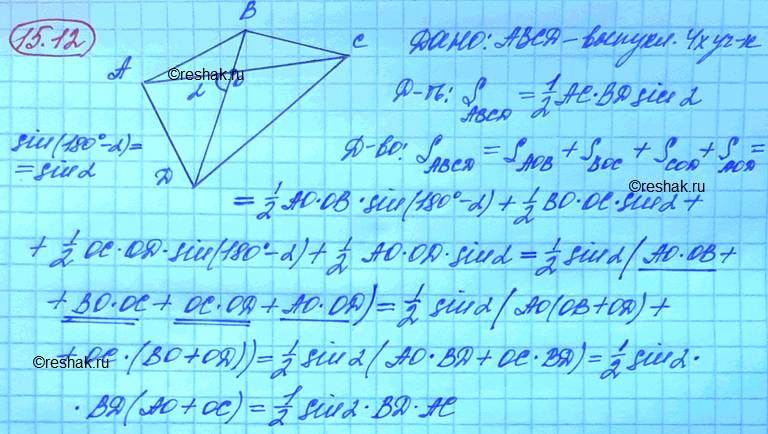 15.12
B
C
A
O
α
D
©reshak.ru
Дано: ABCD – выпукл. 4хуг-к
Д-ть: S_ABCD = 1/2 AC·BD sin α
sin(180°-α)=
= sin α
Д-во: S_ABCD = S_AOB + S_BOC + S_COD + S_AOD =
©reshak.ru
= 1/2 AO·OB·sin(180°-α) + 1/2 BO·OC·sin α +
+ 1/2 OC·OD·sin(180°-α) + 1/2 AO·OD·sin α = 1/2 sin α (AO·OB +
+ BO·OC + OC·OD + AO·OD) = 1/2 sin α (AO(OB+OD) +
©reshak.ru
+ OC·(BO+OD)) = 1/2 sin α (AO·BD + OC·BD) = 1/2 sin α ·
· BD(AO+OC) = 1/2 sin α · BD · AC